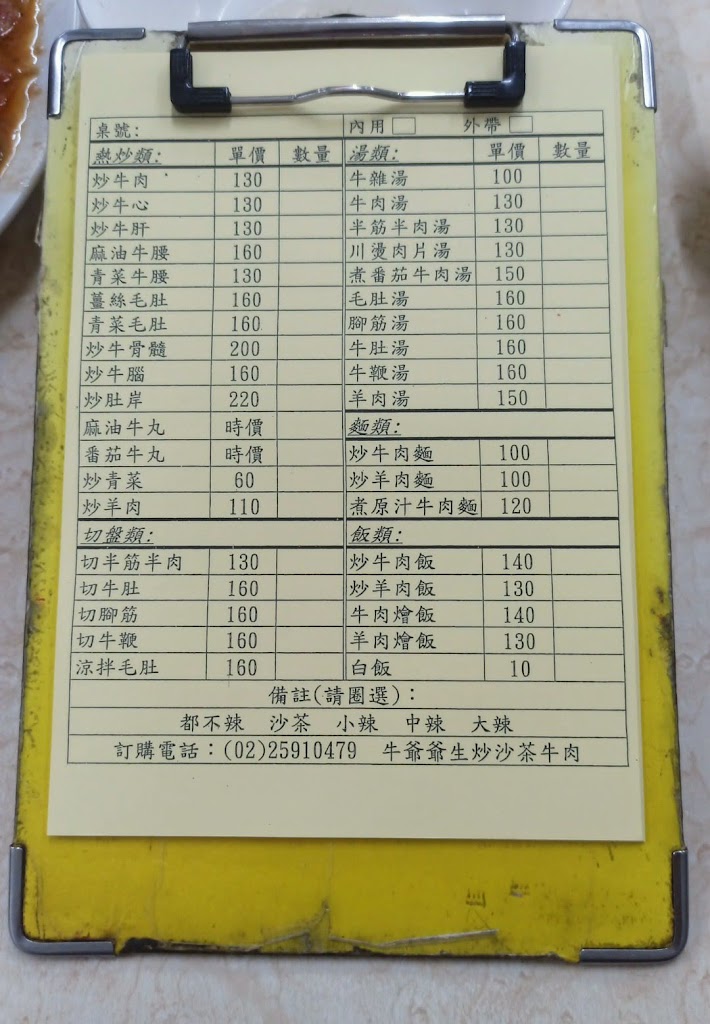 桌號: 內用 外帶
熱炒類: 單價 數量 湯類: 單價 數量
炒牛肉 130 牛雜湯 100
炒牛心 130 牛肉湯 130
炒牛肝 130 半筋半肉湯 130
麻油牛腰 160 川燙肉片湯 130
青菜牛腰 130 煮番茄牛肉湯 150
薑絲毛肚 160 毛肚湯 160
青菜毛肚 160 腳筋湯 160
炒牛骨髓 200 牛肚湯 160
炒牛腦 160 牛鞭湯 160
炒肚岸 220 羊肉湯 150
麻油牛丸 時價 麵類:
番茄牛丸 時價 炒牛肉麵 100
炒青菜 60 炒羊肉麵 100
炒羊肉 110 煮原汁牛肉麵 120
切盤類: 飯類:
切半筋半肉 130 炒牛肉飯 140
切牛肚 160 炒羊肉飯 130
切腳筋 160 牛肉燴飯 140
切牛鞭 160 羊肉燴飯 130
涼拌毛肚 160 白飯 10
備註(請圈選):
都不辣 沙茶 小辣 中辣 大辣
訂購電話:(02)25910479 牛爺爺生炒沙茶牛肉